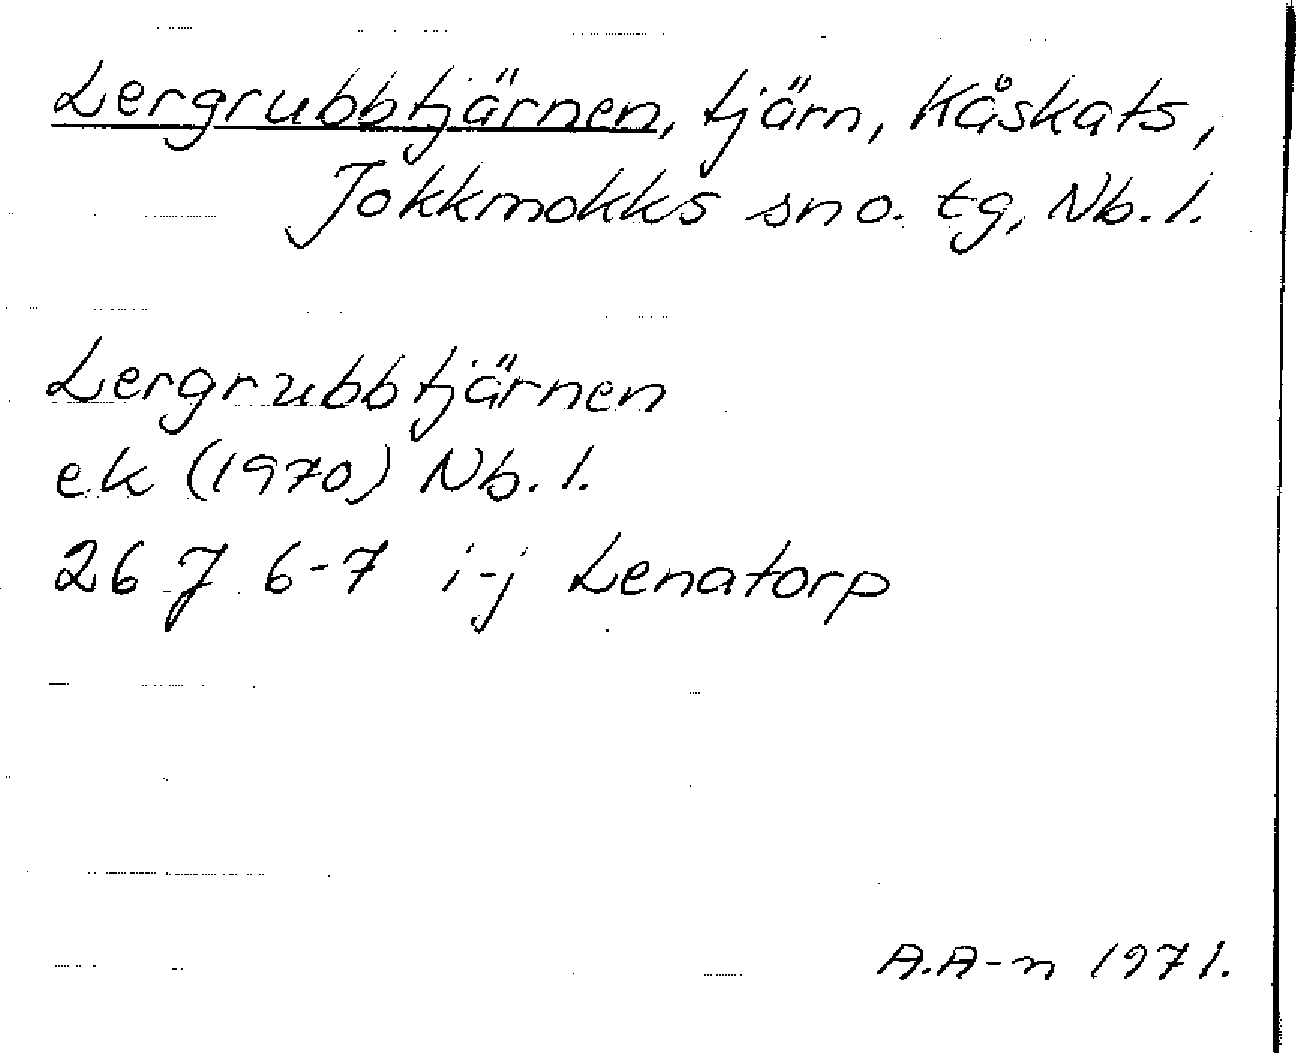 Lergrubbtjärnen, tjärn, Kåskats,
Jokkmokks sn o. tg, Nb. l.
Lergrubbtjärnen
ek (1970) Nb. l.
26 J 6-7 i-j Lenatorp
A.A-n 1971.